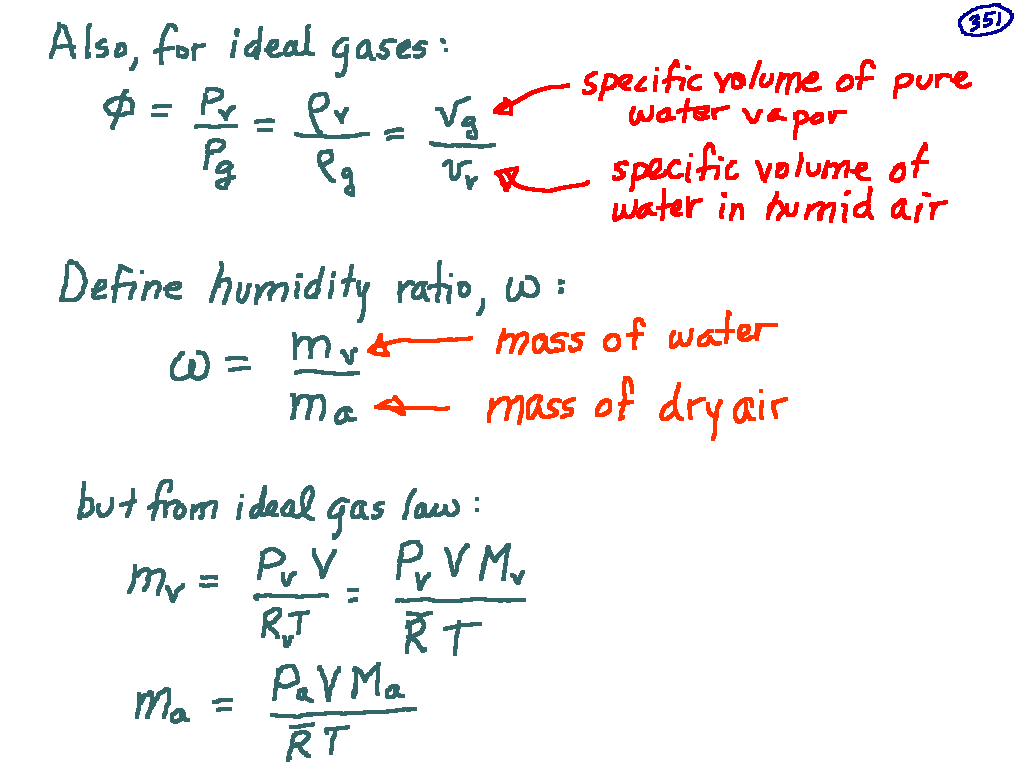 351
Also, for ideal gases:
ϕ = Pv/Pg = ρv/ρg = vg/vv
specific volume of pure
water vapor
specific volume of
water in humid air
Define humidity ratio, ω:
ω = mv/ma
mass of water
mass of dry air
but from ideal gas law:
mv = PvV/RvT = PvVMv/R̄T
ma = PaVMa/R̄T